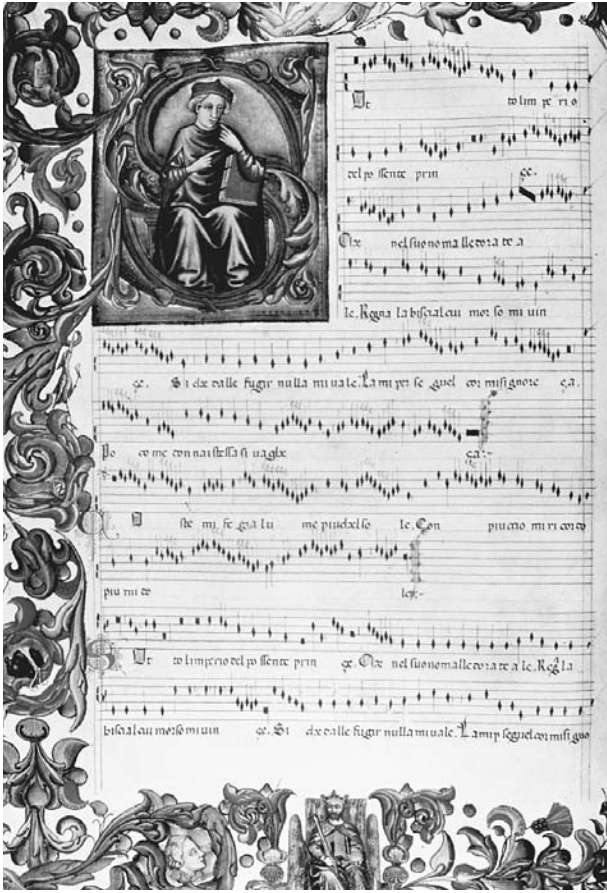 to lim pe rio
del po ssente prin ge.
Che nel suo no ma lle dora te a
le. Regna la biscia al cui mor so mi vin
ge. Si che dalle fugir nulla mi vale. La mi per se guel cor mi signore ça.
Po co me con na i stessa si vaghe ça:-
ste mi fe gia lu me piu chel so le. Con piu ccio mi ri cordo
piu mi do le:-
to limperio del po ssente prin ge. Che nel suo nomalle dora te a le. Regª la
biscia al cui morso mi vin ge. Si che dalle fugir nulla mi vale. La mi p seguel cor mi si gno